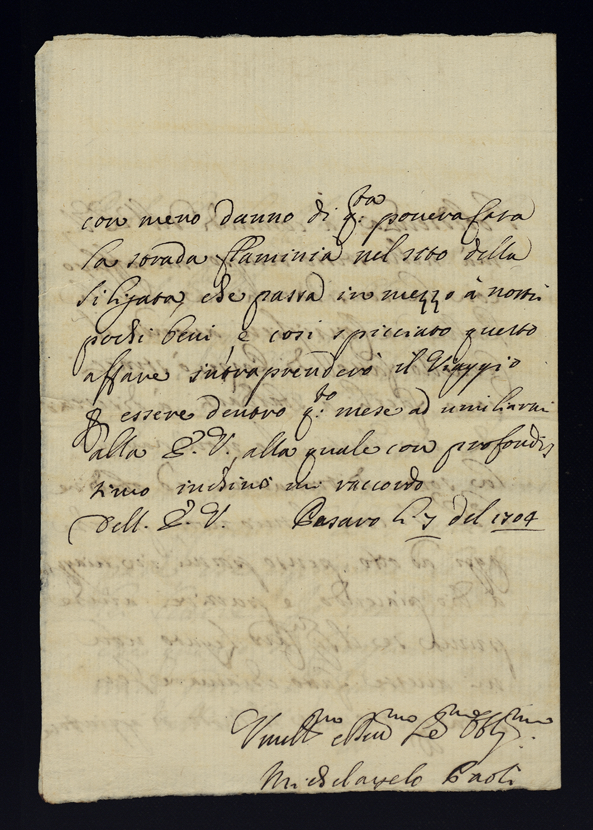 con meno danno di q:ta povera Casa
la strada flaminia nel sito della
Siligata, che passa in mezzo à nostri
pochi beni e così spicciato questo
affare intraprenderò il Viaggio
p essere dentro q:to mese ad umiliarmi
alla E. V. alla quale con profondis
simo inchino mi raccordo
Dell. E. V Pesaro li 7 del 1704
Umill.mo Obblig.mo
Michelangelo Paoli